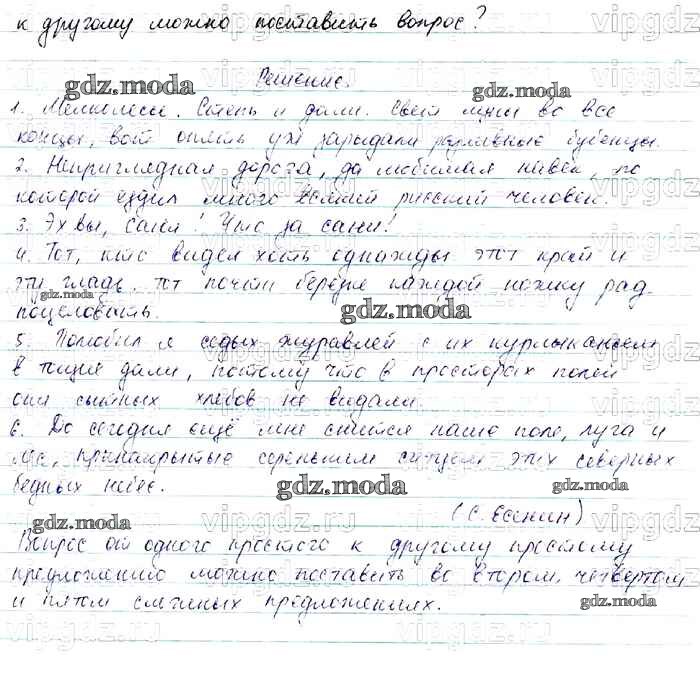 к другому можно поставить вопрос?
Решение.
1. Мелколесье. Степь и дали. Свет луны во все
концы, вот опять уж зарыдали разливные бубенцы.
2. Неприглядная дорога, да любимая навек, по
которой ездил много всякий русский человек.
3. Эх вы, сани! Что за сани!
4. Тот, кто видел хоть однажды этот край и
эту гладь, тот почти берёзке каждой ножку рад
поцеловать.
5. Полюбил я седых журавлей с их курлыканьем
в тощие дали, потому что в просторах полей
они сытных хлебов не видали.
6. До сегодня ещё мне снится наше поле, луга и
лес, принакрытые сереньким ситцем этих северных
бедных небес.
(С. Есенин)
Вопрос от одного простого к другому простому
предложению можно поставить во втором, четвертом
и пятом сложных предложениях.
gdz.moda
vipgdz.ru